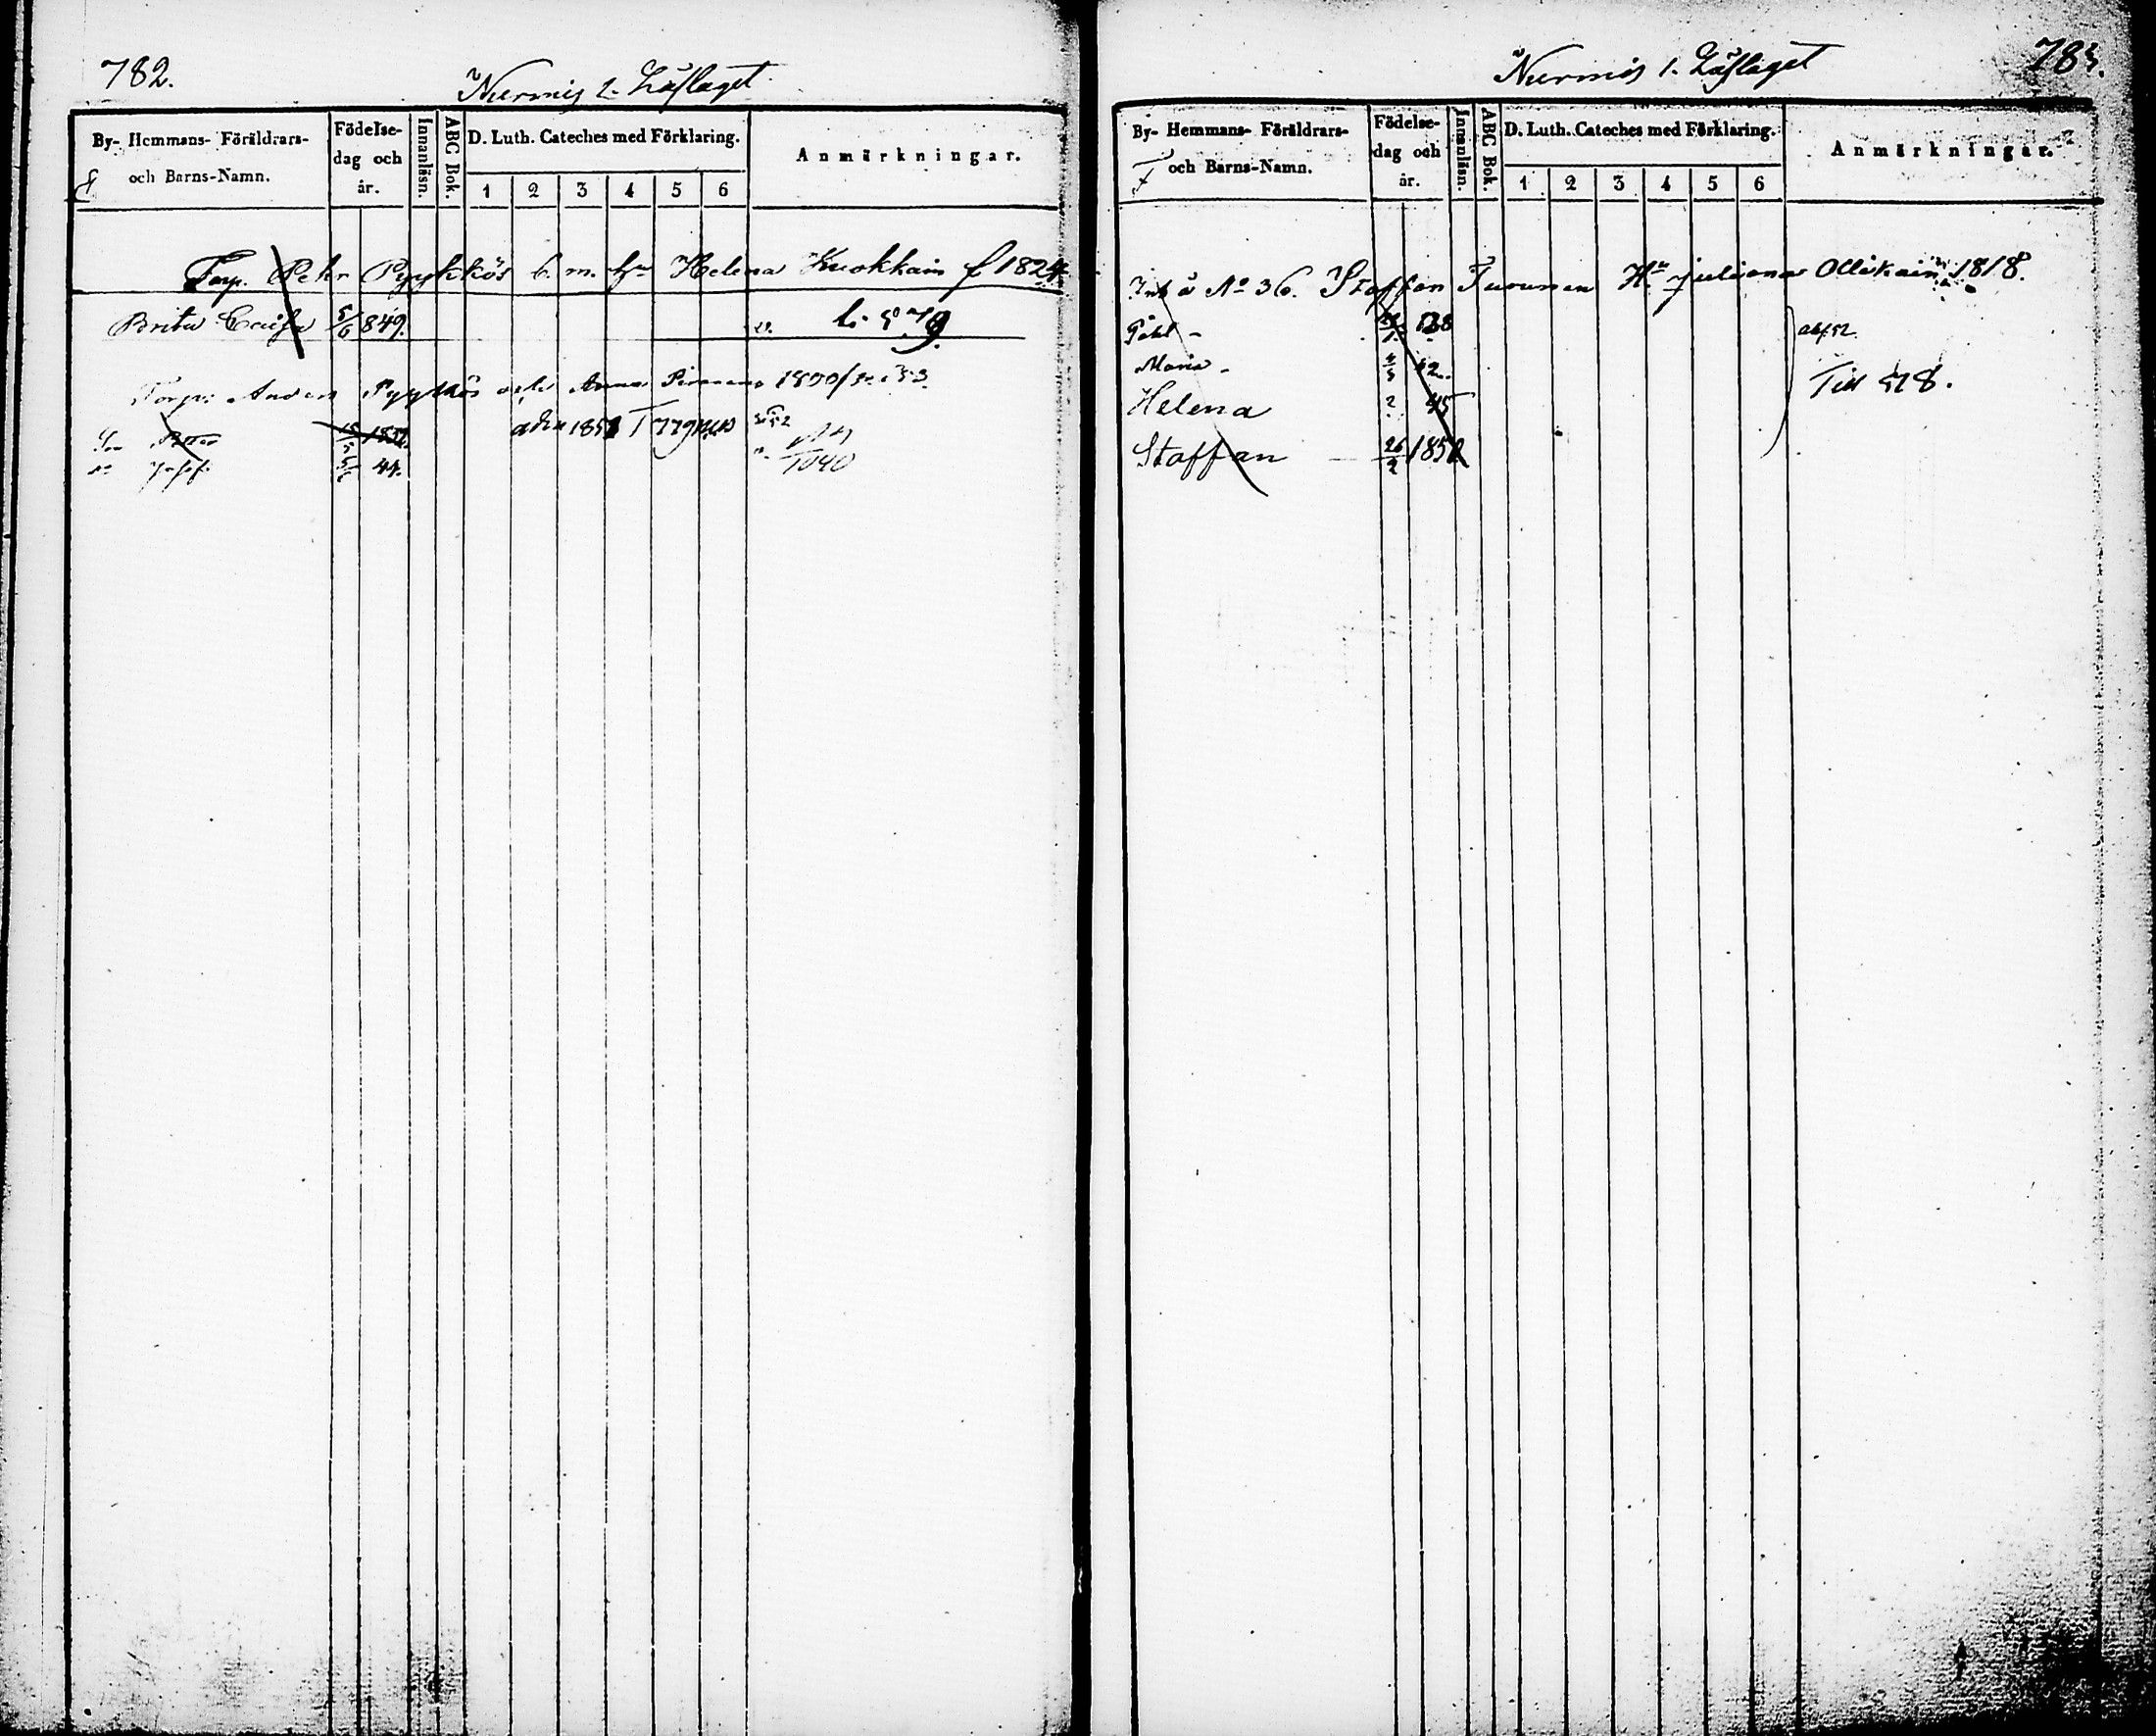 782.
Nurmis 1. Läslaget
By- Hemmans- Föräldrars-
och Barns-Namn.
Födelse-
dag och
år.
Innanläsn.
ABC Bok.
D. Luth. Cateches med Förklaring.
1 2 3 4 5 6
Anmärkningar.
Torp. Pehr Pyykkös b. m. Hu Helena Kuokkain f 1824
Brita Caisa 5/6 849.
Torp: Anders Pyykkös och Anna 1800
Son Petter
Josef 44.
1040
783.
Nurmis 1. Läslaget
By- Hemmans- Föräldrars-
och Barns-Namn.
Födelse-
dag och
år.
Innanläsn.
ABC Bok.
D. Luth. Cateches med Förklaring.
1 2 3 4 5 6
Anmärkningar.
Inh å No 36. Staffan Turunen Hu Juliana Ollikain 1818.
Påhl -
Maria - 42
Helena 45
Staffan 26/2 1850
Till 578.